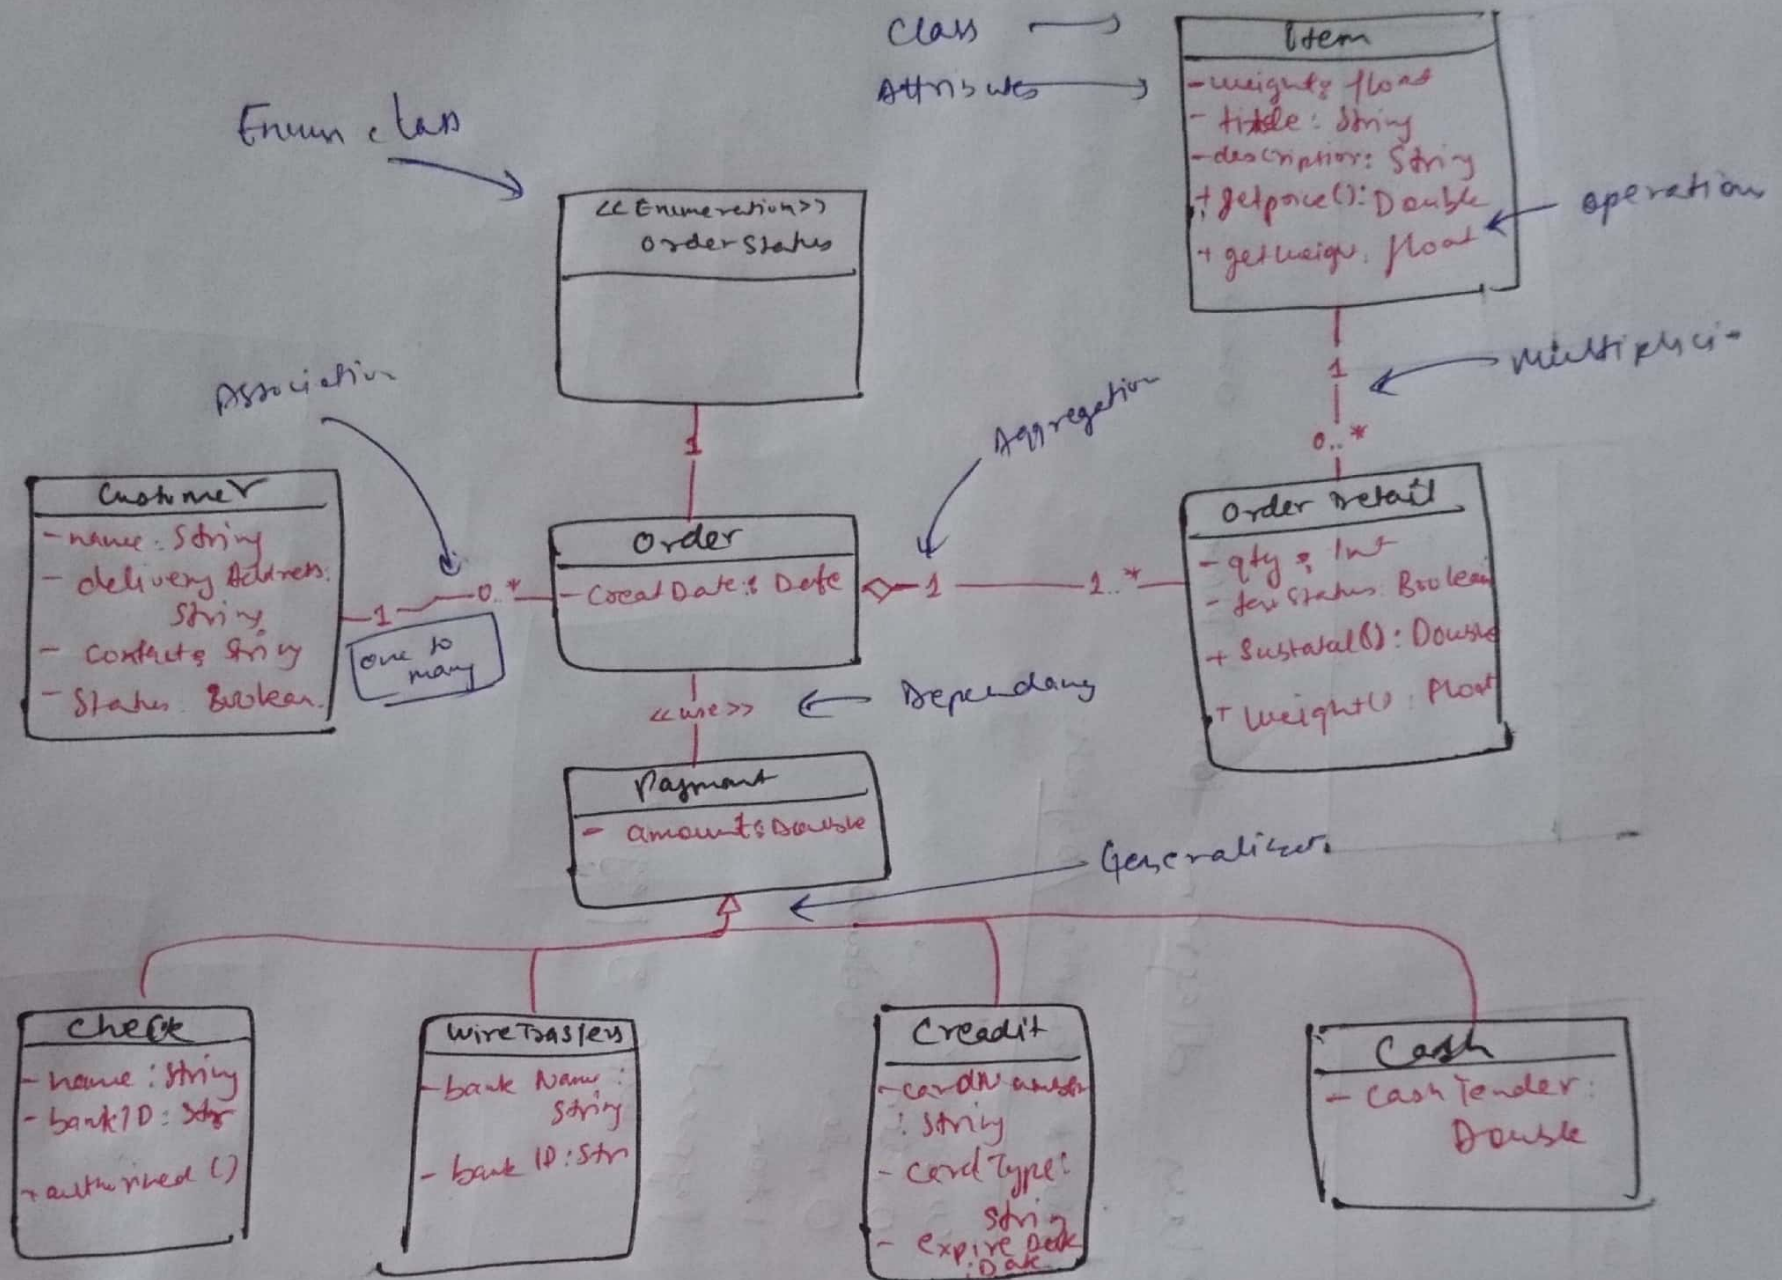 Class
Item
Attributes
- weight: float
- title: String
- description: String
+ getprice(): Double
+ getweigh. float
operation
Enum class
<<Enumeration>>
orderStatus
1
Multiplici-
0..*
Association
1
Aggregation
Customer
- name: String
- delivery Address:
String
- contact: String
- Status: Boolean.
1
0..*
one to
many
Order
- CreatDate: Date
1
1..*
Order Detail
- qty: Int
Status: Boolean
+ Subtotal(): Double
+ weight(): Float
<<use>>
Dependancy
Payment
- amount: Double
Check
- name: String
- bankID: Str
+ authorized ()
- bank Name:
String
- bank ID: Str
Creadit
- cardNumber
: String
- card Type:
String
- expire Date
: Date
Cash
- cash Tender:
Double